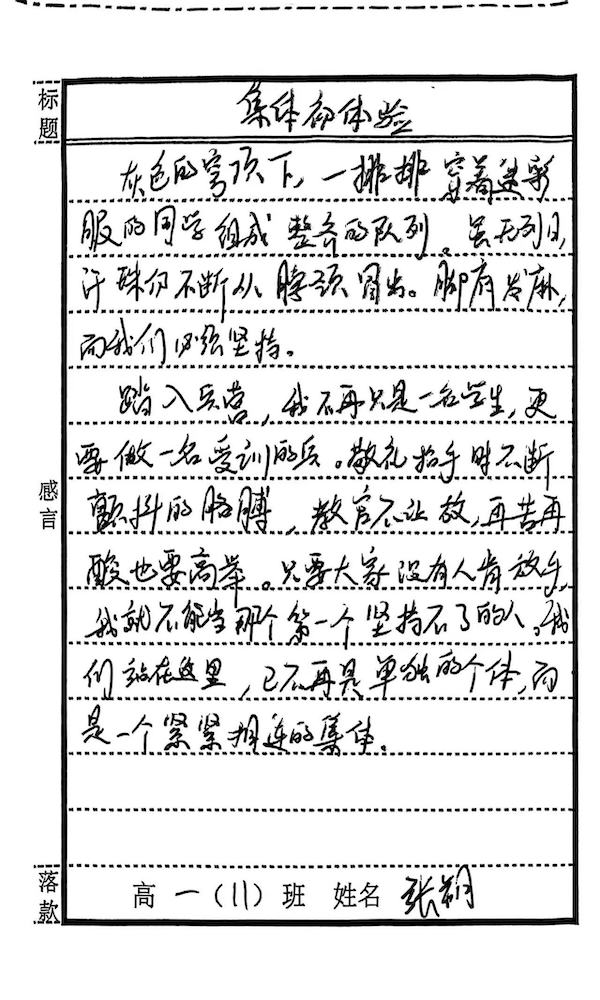 标题
集体初体验
灰色的穹顶下,一排排穿着迷彩
服的同学组成整齐的队列。虽无烈日,
汗珠仍不断从脖颈冒出。脚府发麻,
而我们必须坚持。
踏入兵营,我不再只是一名学生,更
要做一名受训的兵。敬礼抬手时不断
颤抖的胳膊,教官不让放,再苦再
酸也要高举。只要大家没有人肯放手,
我就不能当那个第一个坚持不了的人。我
们站在这里,已不再是单独的个体,而
是一个紧紧相连的集体。
感言
落款
高一(11)班 姓名 张